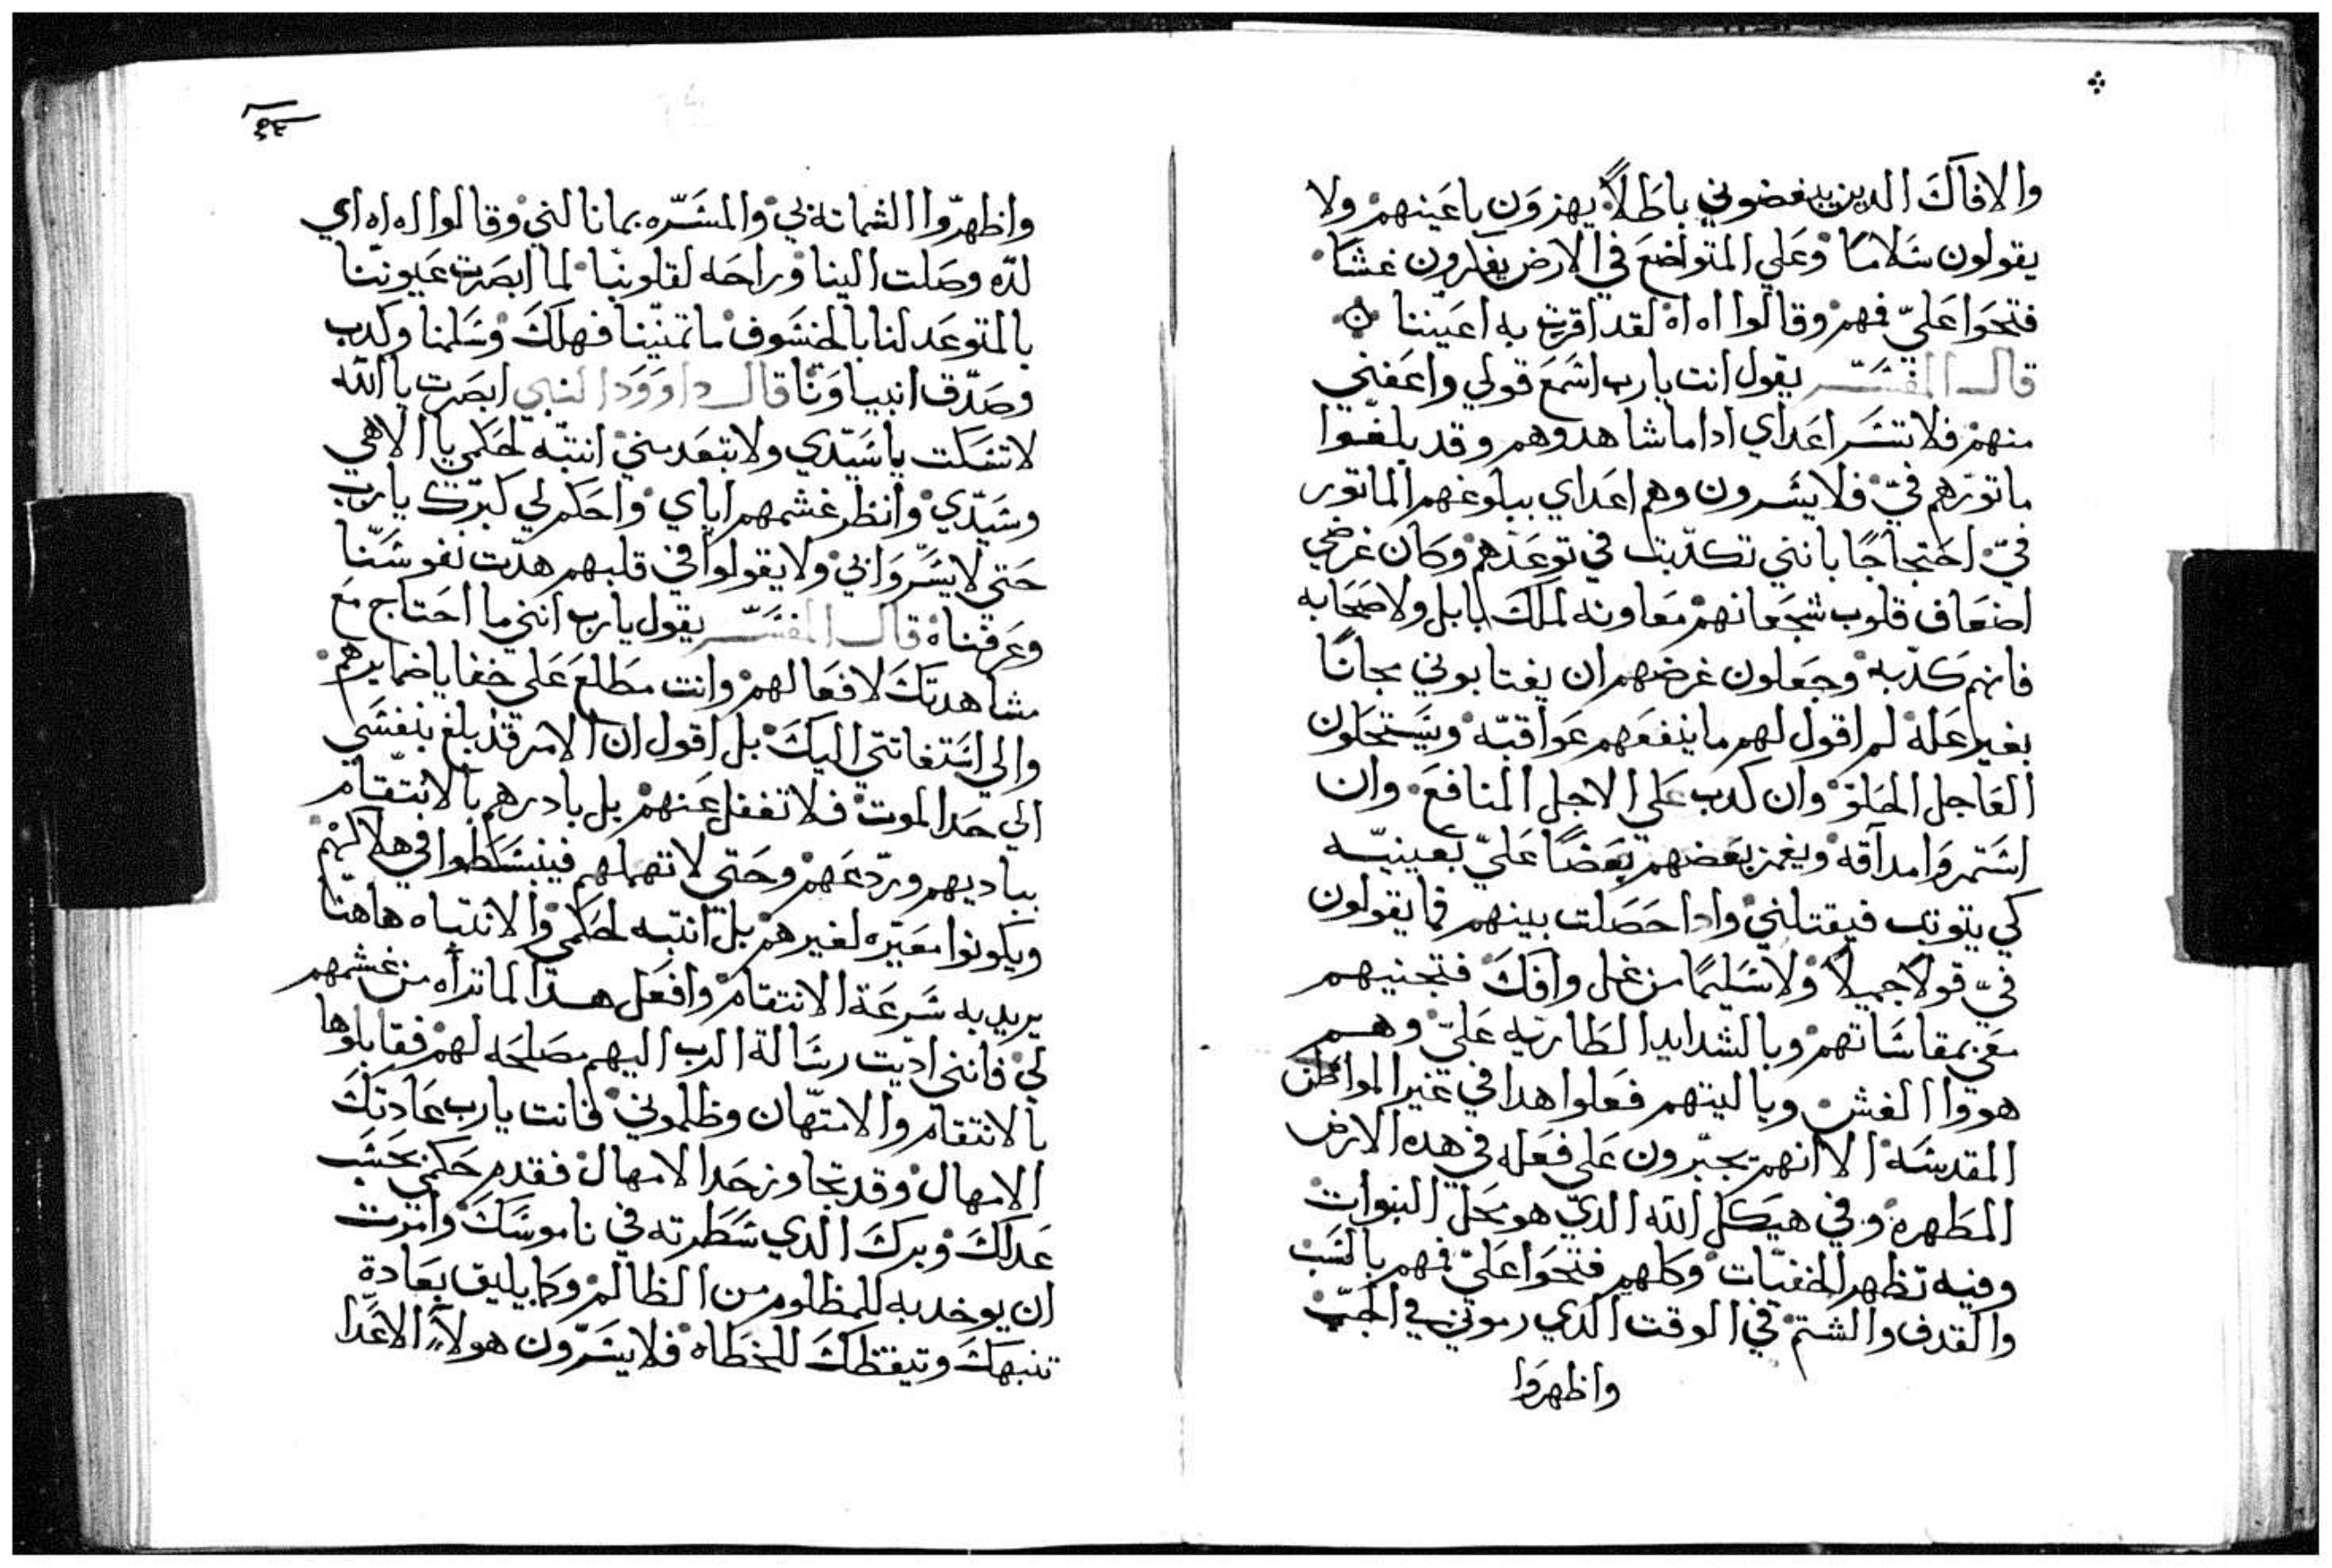 والافاك الدين يبغضوني باطلاً يهزون باعينهم ولا
يقولون سلاما وعلي المتواضع في الارض يفكرون غشا
فتحوا عليّ فمهم وقالوا اه اه لقد اقرت به اعيننا
قال المفسّر يقول انت يارب اسمع قولي واعفني
منهم فلا تسر اعداي ادا ما شاهدوهم وقد بلغوا
ماتورهم فيّ فلا يسرون وهم اعداي ببلوغهم الماتور
فيّ احتجاجًا بانني تكدّبت في توعّدهم وكان غرضي
اضعاف قلوب شجعانهم معاونه لملك بابل ولاصحابه
فانهم كدبه وجعلون غرضهم ان يغتابوني مجانًا
بغير عله لم اقول لهم ما ينفعهم عواقبه ويستحلون
العاجل الحلو وان كدب علي الاجل المنافع وان
استمروا مداقه ويغمز بعضهم بعضًا عليّ بعينيه
كي يتوتب فيقتلني وادا حصلت بينهم فما يقولون
فيّ قولاً جميلاً ولا سليمًا من غل وافك فتجنيهم
معي بمقاساتهم وبالشدايد الطاريه عليّ وهم
هووا الغش وباليتهم فعلوا هدا في غير المواطن
المقدسه الا انهم يجبرون علي فعله في هده الارض
المطهره وفي هيكل الله الدي هو محل النبوات
وفيه تظهر الخفيات وكلهم فتحوا عليّ فمهم بالسب
والقدف والشتم في الوقت الدي رموني في الجب
واظهروا
٣٤
واظهروا الشماته بي والمسرّه بما نالني وقالوا اه اه اي
لده وصلت الينا وراحه لقلوبنا لما ابصرت عيوننا
بالمتوعد لنا بالخسوف ما تمنّينا فهلك وسلمنا وكدب
وصدّق انبياونا قال داوود النبي ابصرت يا الله
لا تسكت ياسيّدي ولا تبعد مني انتبه لحكمي يا الاهي
وسيّدي وانظر غشمهم اياي واحكم لي كبرّك يارب
حتي لا يسرّوا بي ولا يقولوا في قلبهم هدت نفوسنا
وغرقناه قال المفسّر يقول يارب انني ما احتاج مع
مشاهدتك لافعالهم وانت مطلع علي خفايا ضمايرهم
والي استغاتتي اليك بل اقول ان الامر قد بلغ بنفسي
الي حد الموت فلا تغفل عنهم بل بادرهم بالانتقام
بباديهم وردّعهم وحتي لا تهملهم فينبسطوا في هلاكهم
ويكونوا معيّره لغيرهم بل انتبه لحكمي والانتباه هاهنا
يريد به سرعة الانتقام وافعل هدا لما تراه من غشمهم
لي فانني اديت رسالة الرب اليهم مصلحه لهم فقابلوها
بالانتقام والامتهان وظلموني فانت يارب عادتك
الامهال وقد تجاوز حد الامهال فقدم حكمي بحسب
عدلك وبرك الدي سطرته في ناموسك وامرت
ان يوخد به للمظلوم من الظالم وكما يليق بعادة
تنبهك وتيقظك للخطاه فلا يسرّون هولاء الاعدا